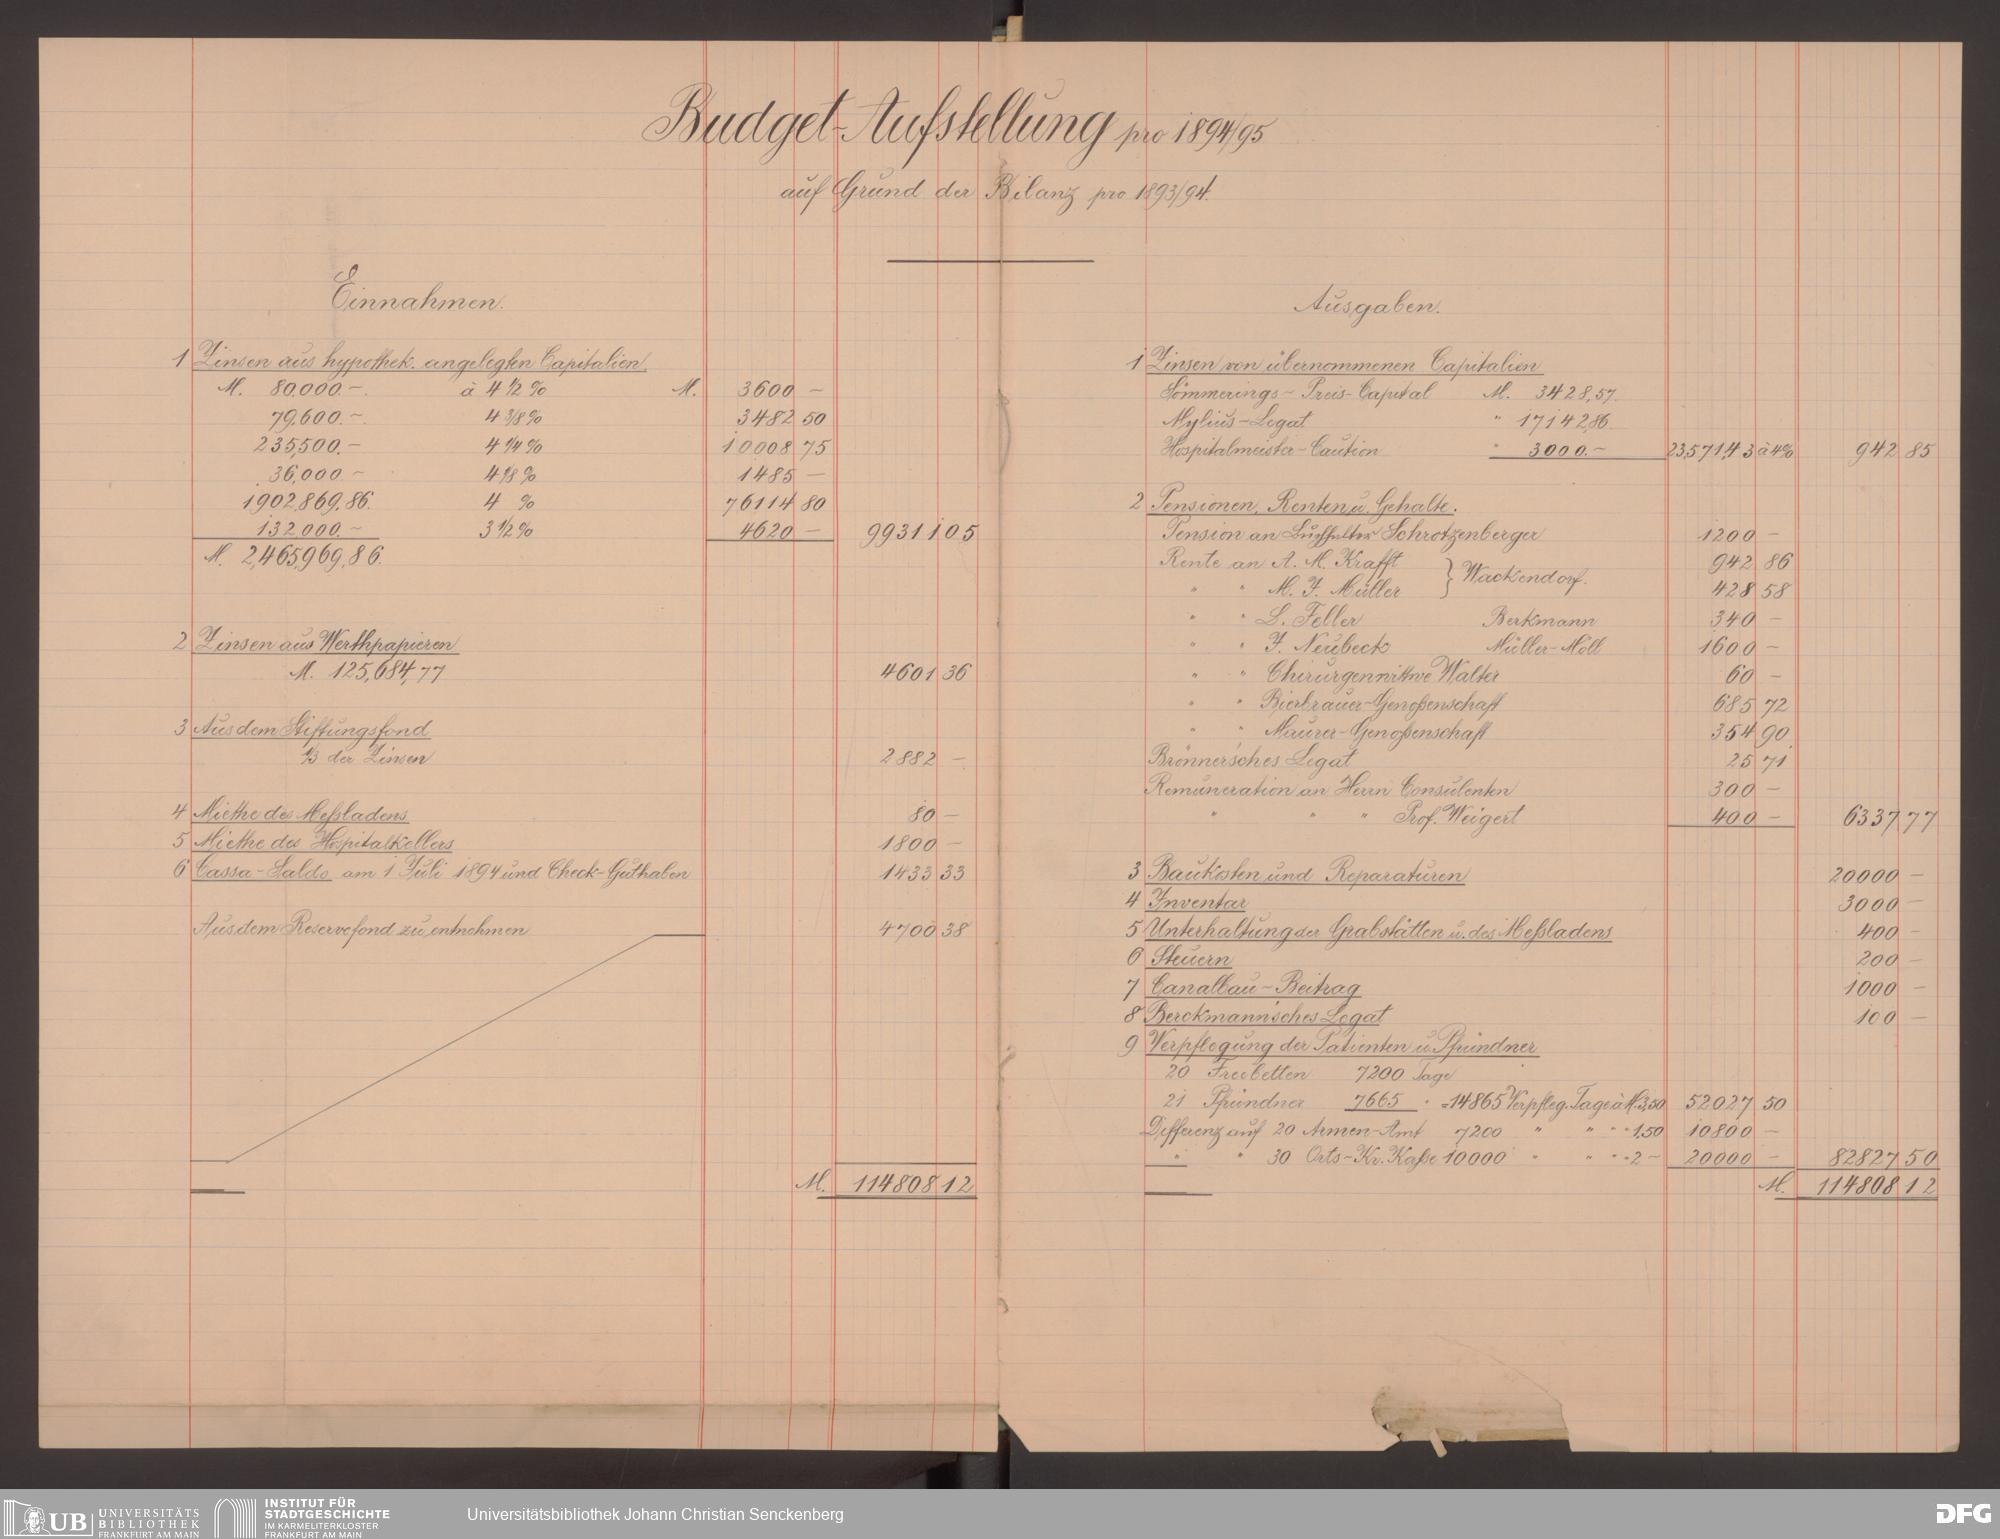 Budget-Aufstellung pro 1894/95
auf Grund der Bilanz pro 1893/94.
Einnahmen.
1 Zinsen aus hypothek. angelegten Capitalien.
M. 80,000.– à 4 1/2 % M. 3600 –
79,600.– 4 3/8 % 3482 50
235,500.– 4 1/4 % 10008 75
36,000 – 4 1/8 % 1485 –
1902,869,86. 4 % 76114 80
132,000.– 3 1/2 % 4620 – 99311 05
M. 2,465,969,86.
2 Zinsen aus Werthpapieren
M. 125,684,77 4601 36
3 Aus dem Stiftungsfond
1/3 der Zinsen 2882 –
4 Miethe des Meßladens 80 –
5 Miethe des Hospitalkellers 1800 –
6 Cassa-Saldo am 1 Juli 1894 und Check-Guthaben 1433 33
Aus dem Reservefond zu entnehmen 4700 38
M. 114808 12
Ausgaben.
1 Zinsen von übernommenen Capitalien
Sömmerings-Preis-Capital M. 3428,57.
Mylius-Legat " 17142,86.
Hospitalmeister-Caution " 3000.– 23,571,43 à 4% 942 85
2 Pensionen, Renten u. Gehalte.
Pension an Buchhalter Schrotzenberger 1200 –
Rente an A. M. Krafft } Wackendorf. 942 86
" " M. F. Müller 428 58
" " L. Feller Berkmann 340 –
" " F. Neubeck Müller-Möll 1600 –
" " Chirurgenwittwe Walter 60 –
" " Bierbrauer-Genoßenschaft 685 72
" " Maurer-Genoßenschaft 354 90
Brönner'sches Legat 25 71
Remuneration an Herrn Consulenten 300 –
" " " Prof. Weigert 400 – 6337 77
3 Baukosten und Reparaturen 20000 –
4 Inventar 3000 –
5 Unterhaltung der Grabstätten u. des Meßladens 400 –
6 Steuern 200 –
7 Canalbau-Beitrag 1000 –
8 Berckmann'sches Legat 100 –
9 Verpflegung der Patienten u. Pfründner
20 Freibetten 7200 Tage
21 Pfründner 7665 " = 14865 Verpfleg. Tage à M. 3,50 52027 50
Differenz auf 20 Armen-Amt 7200 " " " " 1,50 10800 –
" " 30 Orts-Kr. Kaße 10000 " " " " 2 – 20000 – 82827 50
M. 114808 12
UB UNIVERSITÄTS
BIBLIOTHEK
FRANKFURT AM MAIN
INSTITUT FÜR
STADTGESCHICHTE
IM KARMELITERKLOSTER
FRANKFURT AM MAIN
Universitätsbibliothek Johann Christian Senckenberg
DFG